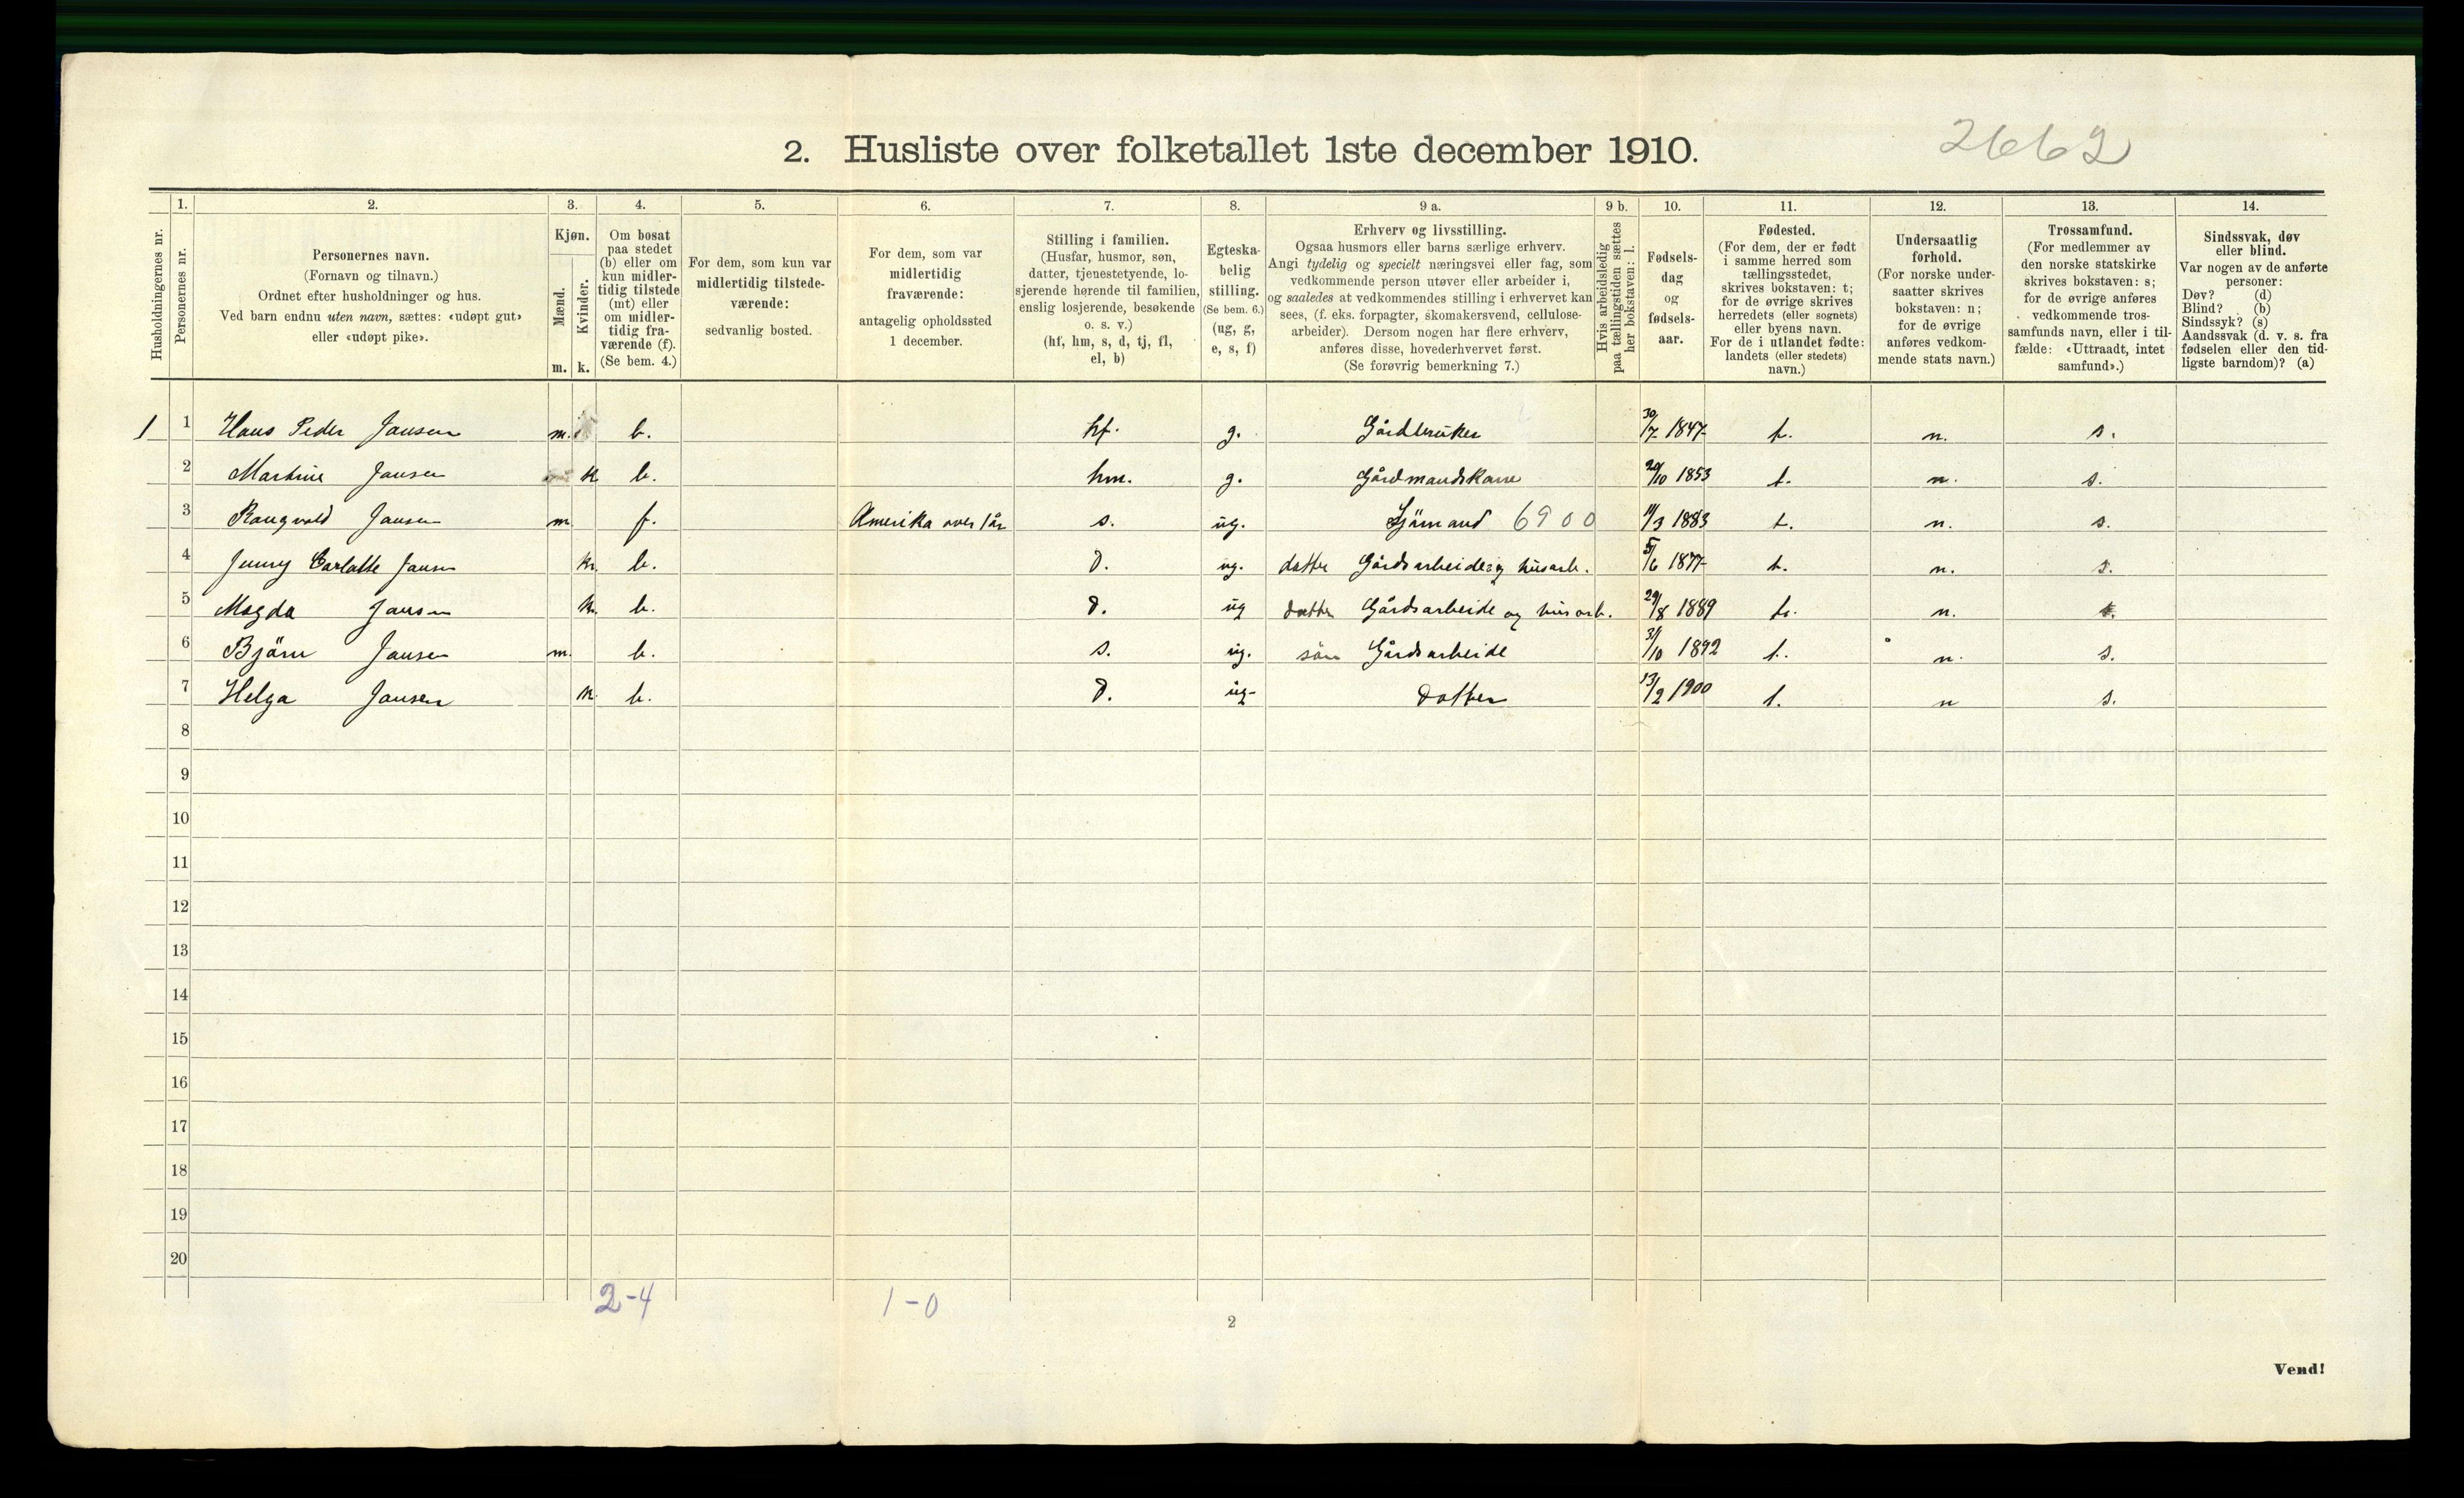 2. Husliste over folketallet 1ste december 1910.
2662
Husholdningernes nr.
1.
Personernes nr.
2.
Personernes navn.
(Fornavn og tilnavn.)
Ordnet efter husholdninger og hus.
Ved barn endnu uten navn, sættes: «udøpt gut»
eller «udøpt pike».
3.
Kjøn.
Mænd.
Kvinder.
m. k.
4.
Om bosat
paa stedet
(b) eller om
kun midler-
tidig tilstede
(mt) eller
om midler-
tidig fra-
værende (f).
(Se bem. 4.)
5.
For dem, som kun var
midlertidig tilstede-
værende:
sedvanlig bosted.
6.
For dem, som var
midlertidig
fraværende:
antagelig opholdssted
1 december.
7.
Stilling i familien.
(Husfar, husmor, søn,
datter, tjenestetyende, lo-
sjerende hørende til familien,
enslig losjerende, besøkende
o. s. v.)
(hf, hm, s, d, tj, fl,
el, b)
8.
Egteska-
belig
stilling.
(Se bem. 6.)
(ug, g,
e, s, f)
9 a.
Erhverv og livsstilling.
Ogsaa husmors eller barns særlige erhverv.
Angi tydelig og specielt næringsvei eller fag, som
vedkommende person utøver eller arbeider i,
og saaledes at vedkommendes stilling i erhvervet kan
sees, (f. eks. forpagter, skomakersvend, cellulose-
arbeider). Dersom nogen har flere erhverv,
anføres disse, hovederhvervet først.
(Se forøvrig bemerkning 7.)
9 b.
Hvis arbeidsledig
paa tællingstiden sættes
her bokstaven: l.
10.
Fødsels-
dag
og
fødsels-
aar.
11.
Fødested.
(For dem, der er født
i samme herred som
tællingsstedet,
skrives bokstaven: t;
for de øvrige skrives
herredets (eller sognets)
eller byens navn.
For de i utlandet fødte:
landets (eller stedets)
navn.)
12.
Undersaatlig
forhold.
(For norske under-
saatter skrives
bokstaven: n;
for de øvrige
anføres vedkom-
mende stats navn.)
13.
Trossamfund.
(For medlemmer av
den norske statskirke
skrives bokstaven: s;
for de øvrige anføres
vedkommende tros-
samfunds navn, eller i til-
fælde: «Uttraadt, intet
samfund».)
14.
Sindssvak, døv
eller blind.
Var nogen av de anførte
personer:
Døv? (d)
Blind? (b)
Sindssyk? (s)
Aandssvak (d. v. s. fra
fødselen eller den tid-
ligste barndom)? (a)
1 1 Hans Peder Jansen m. b. hf. g. Gårdbruker 30/7 1847 t. n. s.
2 Martine Jansen k b. hm. g. Gårdmandskone 20/10 1853 t. n. s.
3 Rangvald Jansen m. f. Amerika over 1 år s. ug. Sjömand 6900 11/3 1883 t. n. s.
4 Jenny Carlotte Jansen k. b. d. ug. datter Gårdsarbeide og husarb. 5/6 1877 t. n. s.
5 Magda Jansen k. b. d. ug datter Gårdsarbeide og husarb. 29/8 1889 t. n. s.
6 Björn Jansen m. b. s. ug. sön Gårdsarbeide 31/10 1892 t. n. s.
7 Helga Jansen k. b. d. ug- Datter 13/2 1900 t. n s.
8
9
10
11
12
13
14
15
16
17
18
19
20
2-4 1-0
2
Vend!